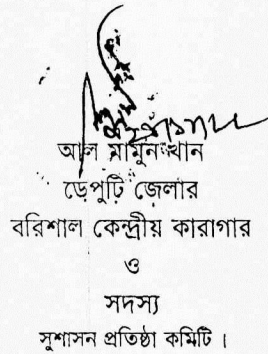 আল মামুন খান
ডেপুটি জেলার
বরিশাল কেন্দ্রীয় কারাগার
ও
সদস্য
সুশাসন প্রতিষ্ঠা কমিটি ।